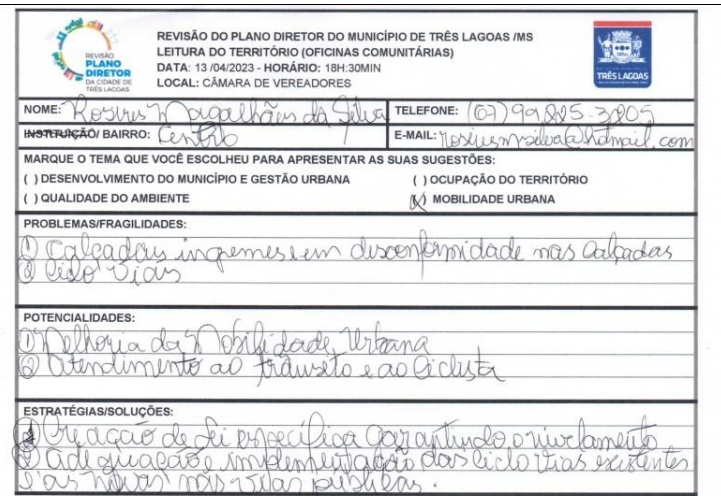 REVISÃO
PLANO
DIRETOR
DA CIDADE DE
TRÊS LAGOAS
REVISÃO DO PLANO DIRETOR DO MUNICÍPIO DE TRÊS LAGOAS /MS
LEITURA DO TERRITÓRIO (OFICINAS COMUNITÁRIAS)
DATA: 13 /04/2023 - HORÁRIO: 18H:30MIN
LOCAL: CÂMARA DE VEREADORES
TRÊS LAGOAS
NOME: Rosires Magalhães da Silva TELEFONE: (67) 99225-3205
INSTITUIÇÃO/ BAIRRO: Centro E-MAIL: rosiresmsilva@hotmail.com
MARQUE O TEMA QUE VOCÊ ESCOLHEU PARA APRESENTAR AS SUAS SUGESTÕES:
( ) DESENVOLVIMENTO DO MUNICÍPIO E GESTÃO URBANA ( ) OCUPAÇÃO DO TERRITÓRIO
( ) QUALIDADE DO AMBIENTE (X) MOBILIDADE URBANA
PROBLEMAS/FRAGILIDADES:
① Calçadas ingremes e em disconformidade nas Calçadas
② Ciclo Vias
POTENCIALIDADES:
① Melhoria da Mobilidade Urbana
② Atendimento ao trânsito e ao Ciclista
ESTRATÉGIAS/SOLUÇÕES:
① Creação de Lei específica garantindo o nivelamento
② adequação e implementação das ciclo vias existentes
e as novas nas vias públicas.